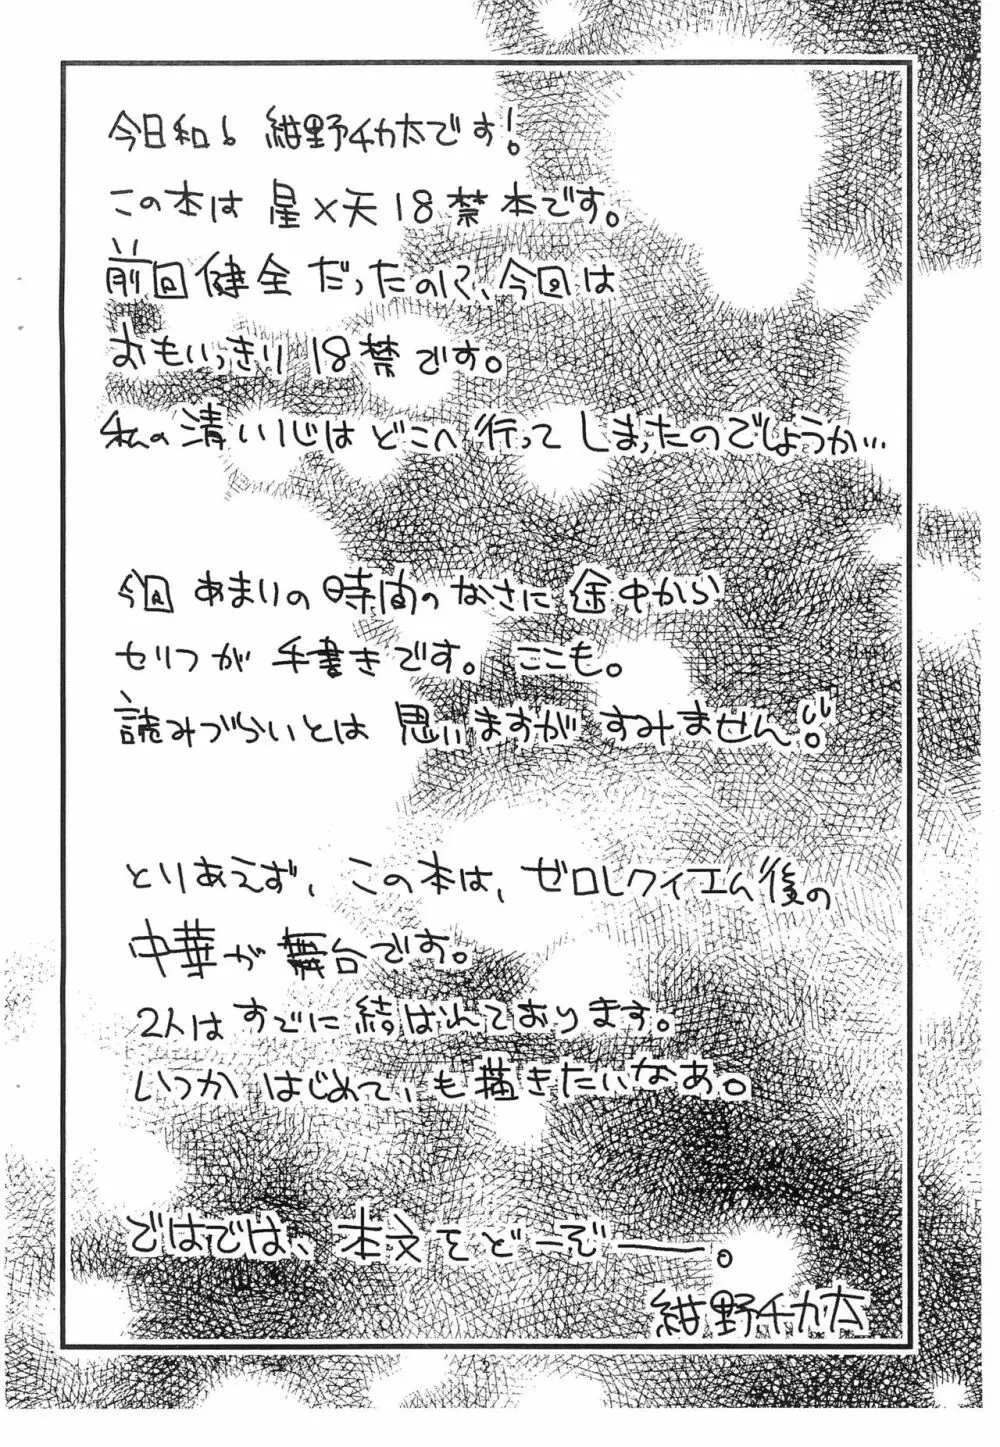 今日和! 紺野チカ太です!
この本は 星×天18禁本です。
前回健全だったのに、今回は
おもいっきり 18禁です。
私の清い心はどこへ行ってしまったのでしょうか…
今回 あまりの時間のなさに途中から
セリフが手書きです。ここも。
読みづらいとは思いますがすみません!!
とりあえず、この本は、ゼロレクイエム後の
中華が舞台です。
2人はすでに結ばれております。
いつかはじめて、も描きたいなあ。
ではでは、本文をどーぞ――。
紺野チカ太